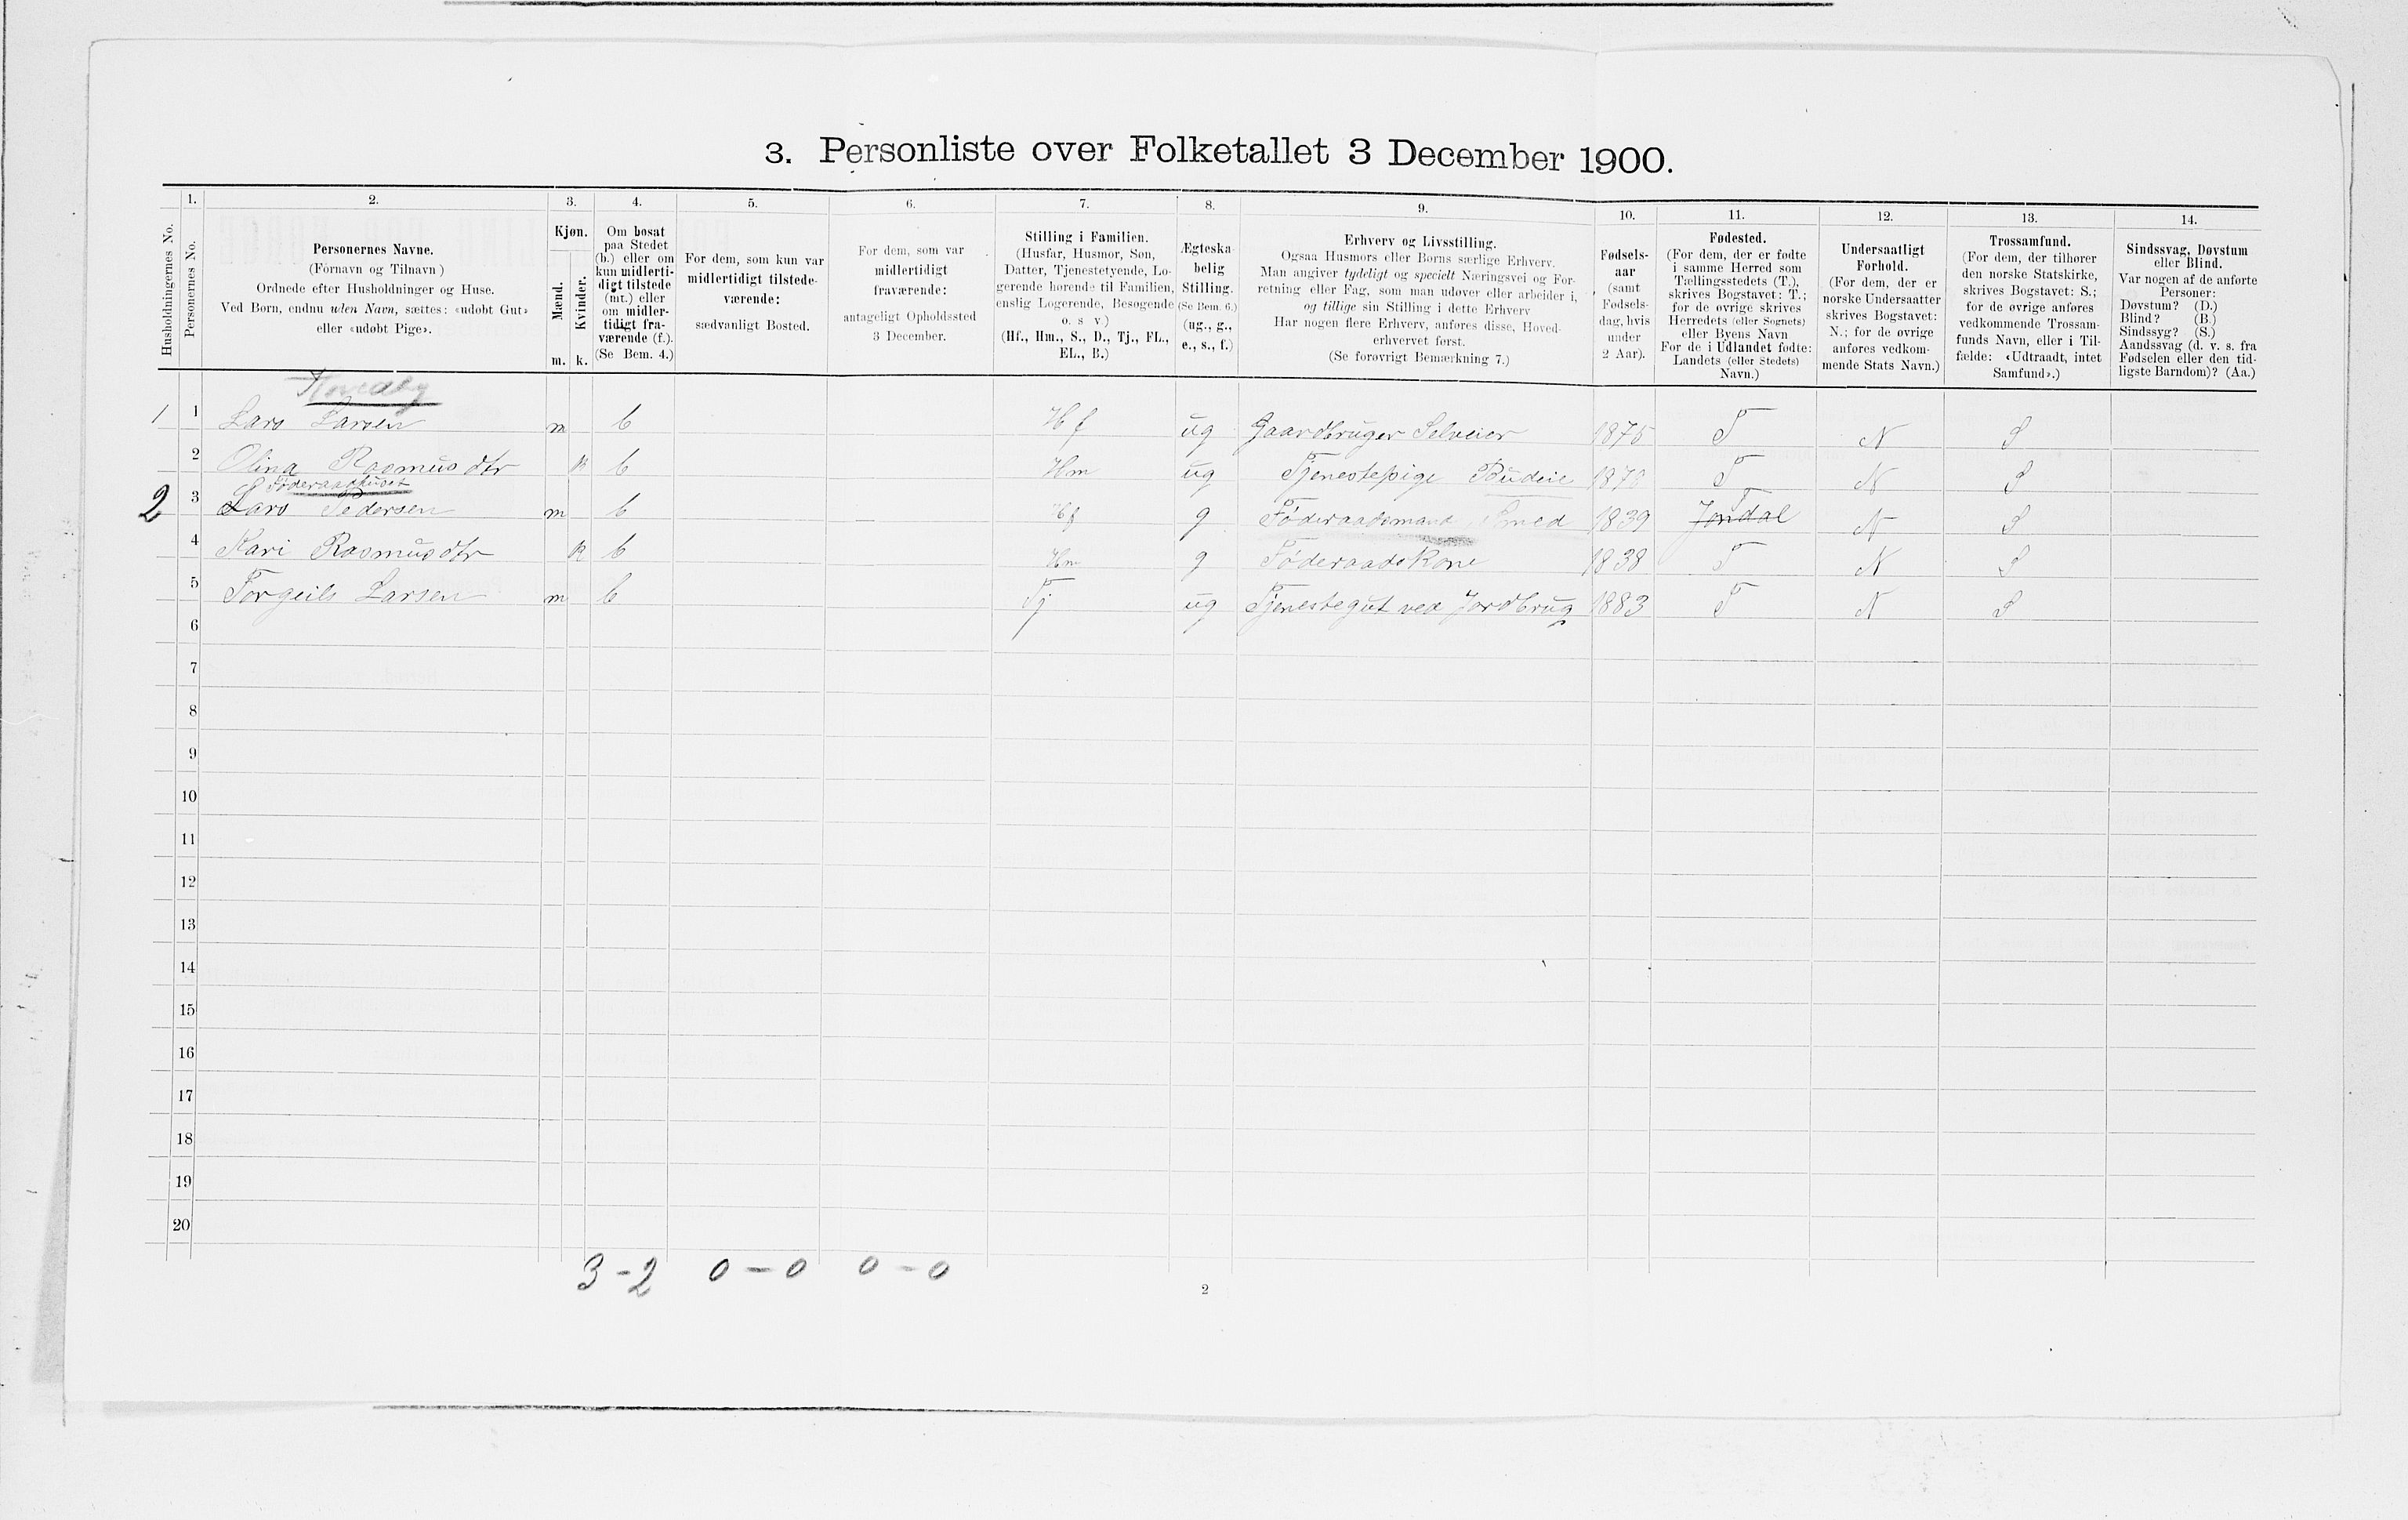 3. Personliste over Folketallet 3 December 1900.
1. 2. 3. 4. 5. 6. 7. 8. 9. 10. 11. 12. 13. 14.
Husholdningernes No.
Personernes No.
Personernes Navne.
(Fornavn og Tilnavn)
Ordnede efter Husholdninger og Huse.
Ved Børn, endnu uden Navn, sættes: «udøbt Gut»
eller «udøbt Pige».
Kjøn.
Mænd.
Kvinder.
m. k.
Om bosat
paa Stedet
(b.) eller om
kun midlerti-
digt tilstede
(mt.) eller
om midler-
tidigt fra-
værende (f.).
(Se Bem. 4.)
For dem, som kun var
midlertidigt tilstede-
værende:
sædvanligt Bosted.
For dem, som var
midlertidigt
fraværende:
antageligt Opholdssted
3 December.
Stilling i Familien.
(Husfar, Husmor, Søn,
Datter, Tjenestetyende, Lo-
gerende hørende til Familien,
enslig Logerende, Besøgende
o. s v)
(Hf., Hm., S., D., Tj., FL.,
EL., B.)
Ægteska-
belig
Stilling.
(Se Bem. 6.)
(ug., g.,
e., s., f.)
Erhverv og Livsstilling.
Ogsaa Husmors eller Børns særlige Erhverv.
Man angiver tydeligt og specielt Næringsvei og For-
retning eller Fag, som man udøver eller arbeider i,
og tillige sin Stilling i dette Erhverv
Har nogen flere Erhverv, anføres disse, Hoved-
erhvervet først.
(Se forøvrigt Bemærkning 7.)
Fødsels-
aar
(samt
Fødsels-
dag, hvis
under
2 Aar).
Fødested.
(For dem, der er fødte
i samme Herred som
Tællingsstedets (T.),
skrives Bogstavet: T.;
for de øvrige skrives
Herredets (eller Sognets)
eller Byens Navn
For de i Udlandet fødte:
Landets (eller Stedets)
Navn.)
Undersaatligt
Forhold.
(For dem, der er
norske Undersaatter
skrives Bogstavet:
N.; for de øvrige
anføres vedkom-
mende Stats Navn.)
Trossamfund.
(For dem, der tilhører
den norske Statskirke,
skrives Bogstavet: S.;
for de øvrige anføres
vedkommende Trossam-
funds Navn, eller i Til-
fælde: «Udtraadt, intet
Samfund».)
Sindssvag, Døvstum
eller Blind.
Var nogen af de anførte
Personer:
Døvstum? (D.)
Blind? (B.)
Sindssyg? (S.)
Aandssvag (d. v. s. fra
Fødselen eller den tid-
ligste Barndom)? (Aa.)
1 1 Lars Larsen m b Hf ug Gaardbruger Selveier 1875 T N S
2 Olina Rasmusdtr k b Hm ug Tjenestepige Budeie T N S
Føderaadhuset
2 3 Lars Pedersen m b Hf g Føderaadsmand, Smed 1839 Jondal T N S
4 Kari Rasmusdtr k b Hm g Føderaadskone 1838 T N S
5 Torgeils Larsen m b Tj ug Tjenestegut ved Jordbrug 1883 T N S
6
7
8
9
10
11
12
13
14
15
16
17
18
19
20
3 - 2 0 - 0 0 - 0
2